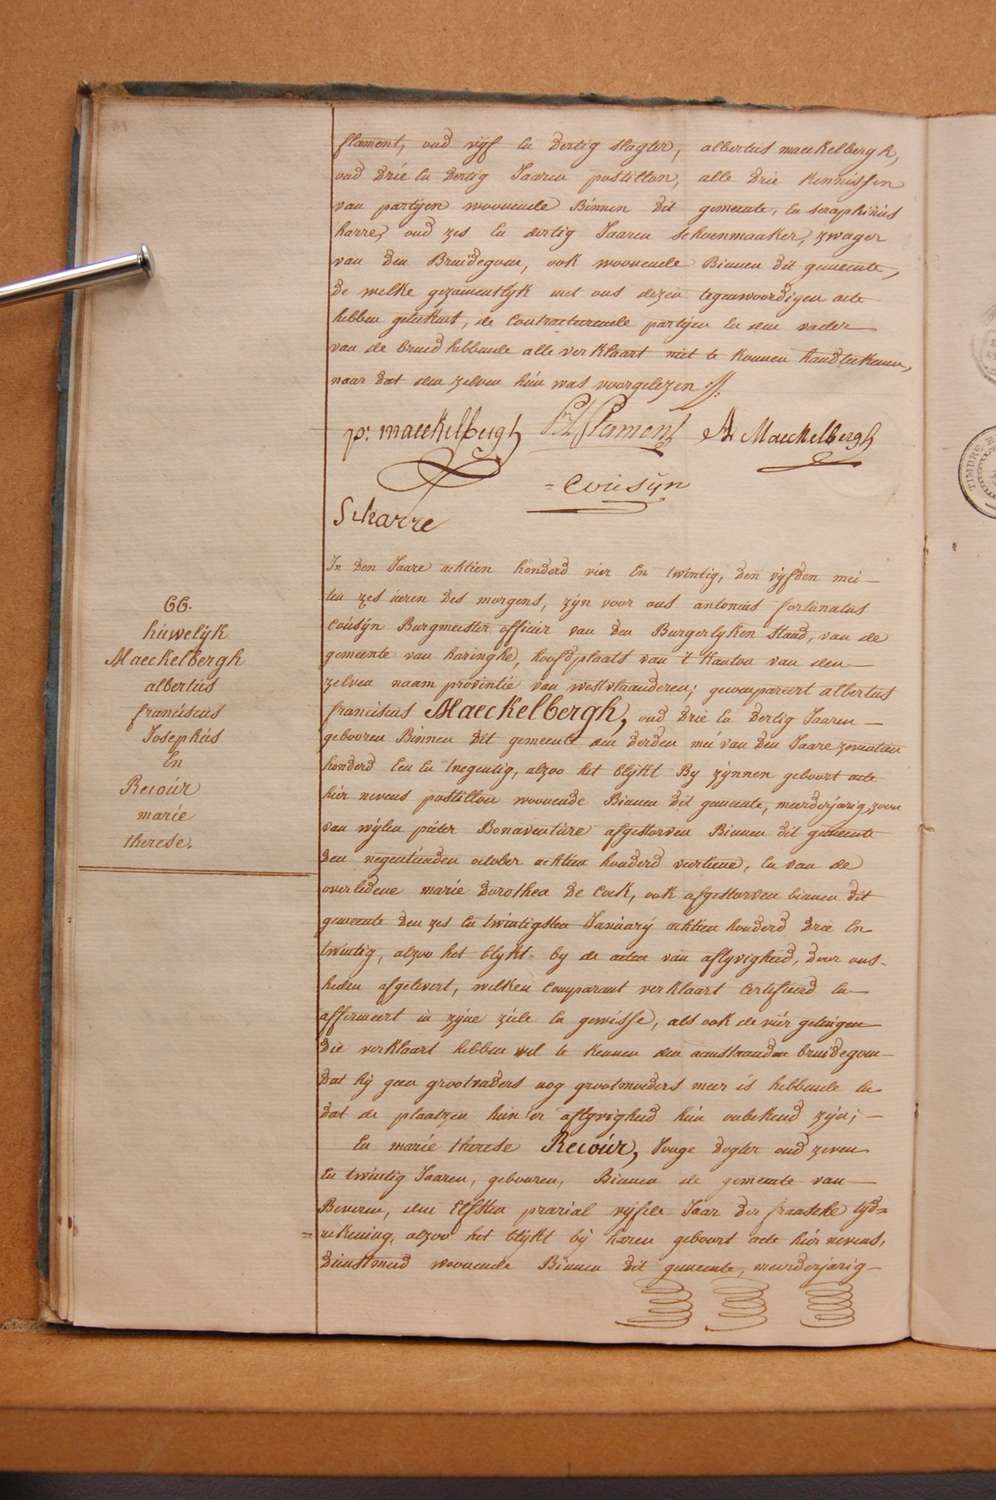 flament, oud vyf en dertig slagter, albertus maeckelbergh,
oud drie en dertig Jaaren postillon, alle drie kennissen
van partyen woonende Binnen dit gemeente, en seraphinus
harre, oud zes en dertig Jaaren schoenmaaker, zwager
van den Bruidegom, ook woonende Binnen dit gemeente,
de welke gezamentlyk met ons dezen tegenwoordigen acte
hebben geteekent, de Contracteerende partyen en den vader
van de bruid hebbende alle verklaart niet te konnen handteekenen,
naar dat den zelven hun was voorgelezen //.
p: maeckelbergh Flament A Maeckelbergh
= Cousyn
S: harre
66.
huwelyk
Maeckelbergh
albertus
franciscus
Josephus
En
Recour
marie
therese.
In den Jaare achtien honderd vier En twintig, den vyfden mei
ten zes ueren des morgens, zyn voor ons antonius fortunatus
Cousyn Burgmeister officier van den Burgerlyken stand, van de
gemeente van haringhe, hoofdplaats van 't kanton van den
zelven naam provintie van westvlaanderen; gecompareert albertus
franciscus Maeckelbergh, oud drie en dertig Jaaren
gebooren Binnen dit gemeente den derden mei van den Jaare zeventien
honderd Een en tnegentig, alzoo het blykt By zynnen geboort acte
hier nevens postillon woonende Binnen dit gemeente, meerderjarig, zoon
van wylen pieter Bonaventure afgestorven Binnen dit gemeente
den negentienden october achtien honderd veertiene, en van de
overledene marie dorothea de Cock, ook afgestorven binnen dit
gemeente den zes en twintigsten January achtien honderd drie En
twintig, alzoo het blykt by de acten van aflyvigheid, door ons
heden afgelevert, welken Comparant verklaart Certifieerd en
affirmeert in zyne ziele en gewisse, als ook de vier getuigen
die verklaart hebben wel te kennen den aanstaanden bruidegom
dat hy geen grootvaders nog grootmoeders meer is hebbende en
dat de plaatzen hun'er aflyvigheid hun onbekend zyn;
En marie therese Recour, Jonge dogter oud zeven
En twintig Jaaren, gebooren, Binnen de gemeente van
Beveren, den Elfsten prairial vyfde Jaar der fransche tyd=
=rekening, alzoo het blykt by haeren geboort acte hier nevens,
dienstmeid woonende Binnen dit gemeente, meerderjarig
TIMBRE